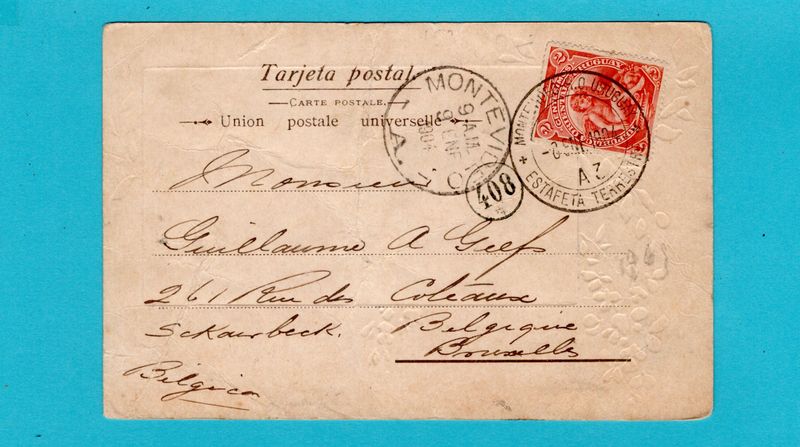 Tarjeta postal.
CARTE POSTALE.
Union postale universelle
MONTEVIDEO
9 A.M.
9 ENE
408
URUGUAY
2
2
MONTEVIDEO
+ ESTAFETA TERRESTRE
A 3
Monsieur
Guillaume A Geefs
261 Rue des Coteaux
Sckaerbeck. Belgique
Bruxelles
Bélgica